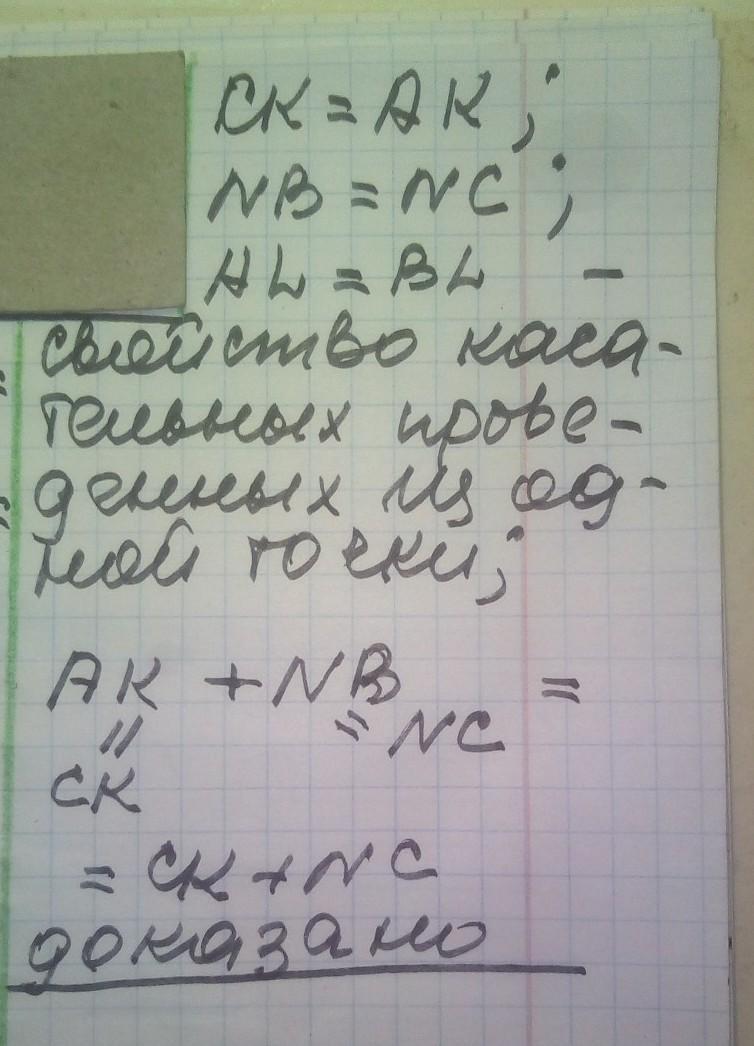 CK = AK;
NB = NC;
AL = BL –
свойство каса-
тельных прове-
денных из од-
ной точки;
AK + NB =
= = NC
CK
= CK + NC
доказано